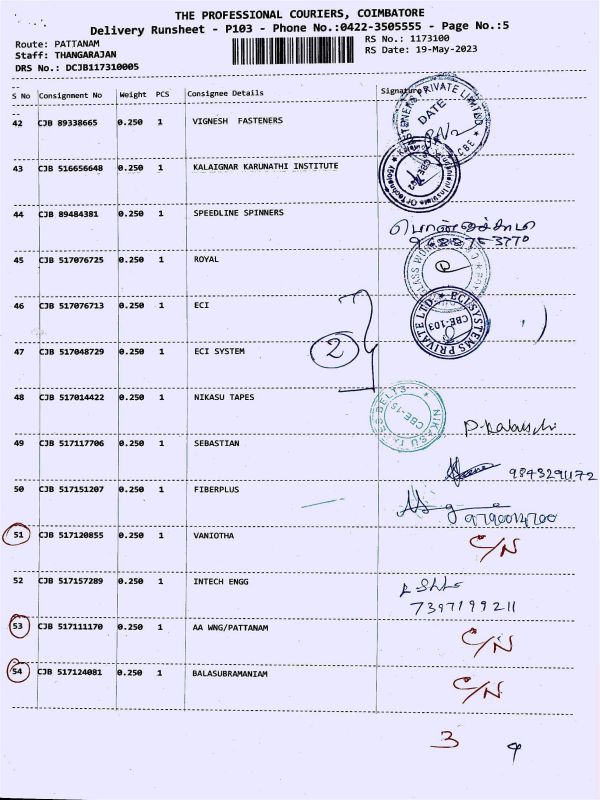 THE PROFESSIONAL COURIERS, COIMBATORE
Delivery Runsheet - P103 - Phone No.:0422-3505555 - Page No.:5
Route: PATTANAM
RS No.: 1173100
Staff: THANGARAJAN
RS Date: 19-May-2023
DRS No.: DCJB117310005
S No Consignment No Weight PCS Consignee Details Signature
42 CJB 89338665 0.250 1 VIGNESH FASTENERS
PRIVATE LIMITED DATE CBE
43 CJB 516656648 0.250 1 KALAIGNAR KARUNATHI INSTITUTE
Institute Of Technology
44 CJB 89484381 0.250 1 SPEEDLINE SPINNERS
45 CJB 517076725 0.250 1 ROYAL
46 CJB 517076713 0.250 1 ECI
ECI SYSTEMS PRIVATE LTD. CBE-103
2
47 CJB 517048729 0.250 1 ECI SYSTEM
48 CJB 517014422 0.250 1 NIKASU TAPES
NIKASU BELTS
49 CJB 517117706 0.250 1 SEBASTIAN
9843291172
50 CJB 517151207 0.250 1 FIBERPLUS
51 CJB 517120855 0.250 1 VANIOTHA C/N
52 CJB 517157289 0.250 1 INTECH ENGG
7397199211
53 CJB 517111170 0.250 1 AA WNG/PATTANAM C/N
54 CJB 517124081 0.250 1 BALASUBRAMANIAM C/N
3